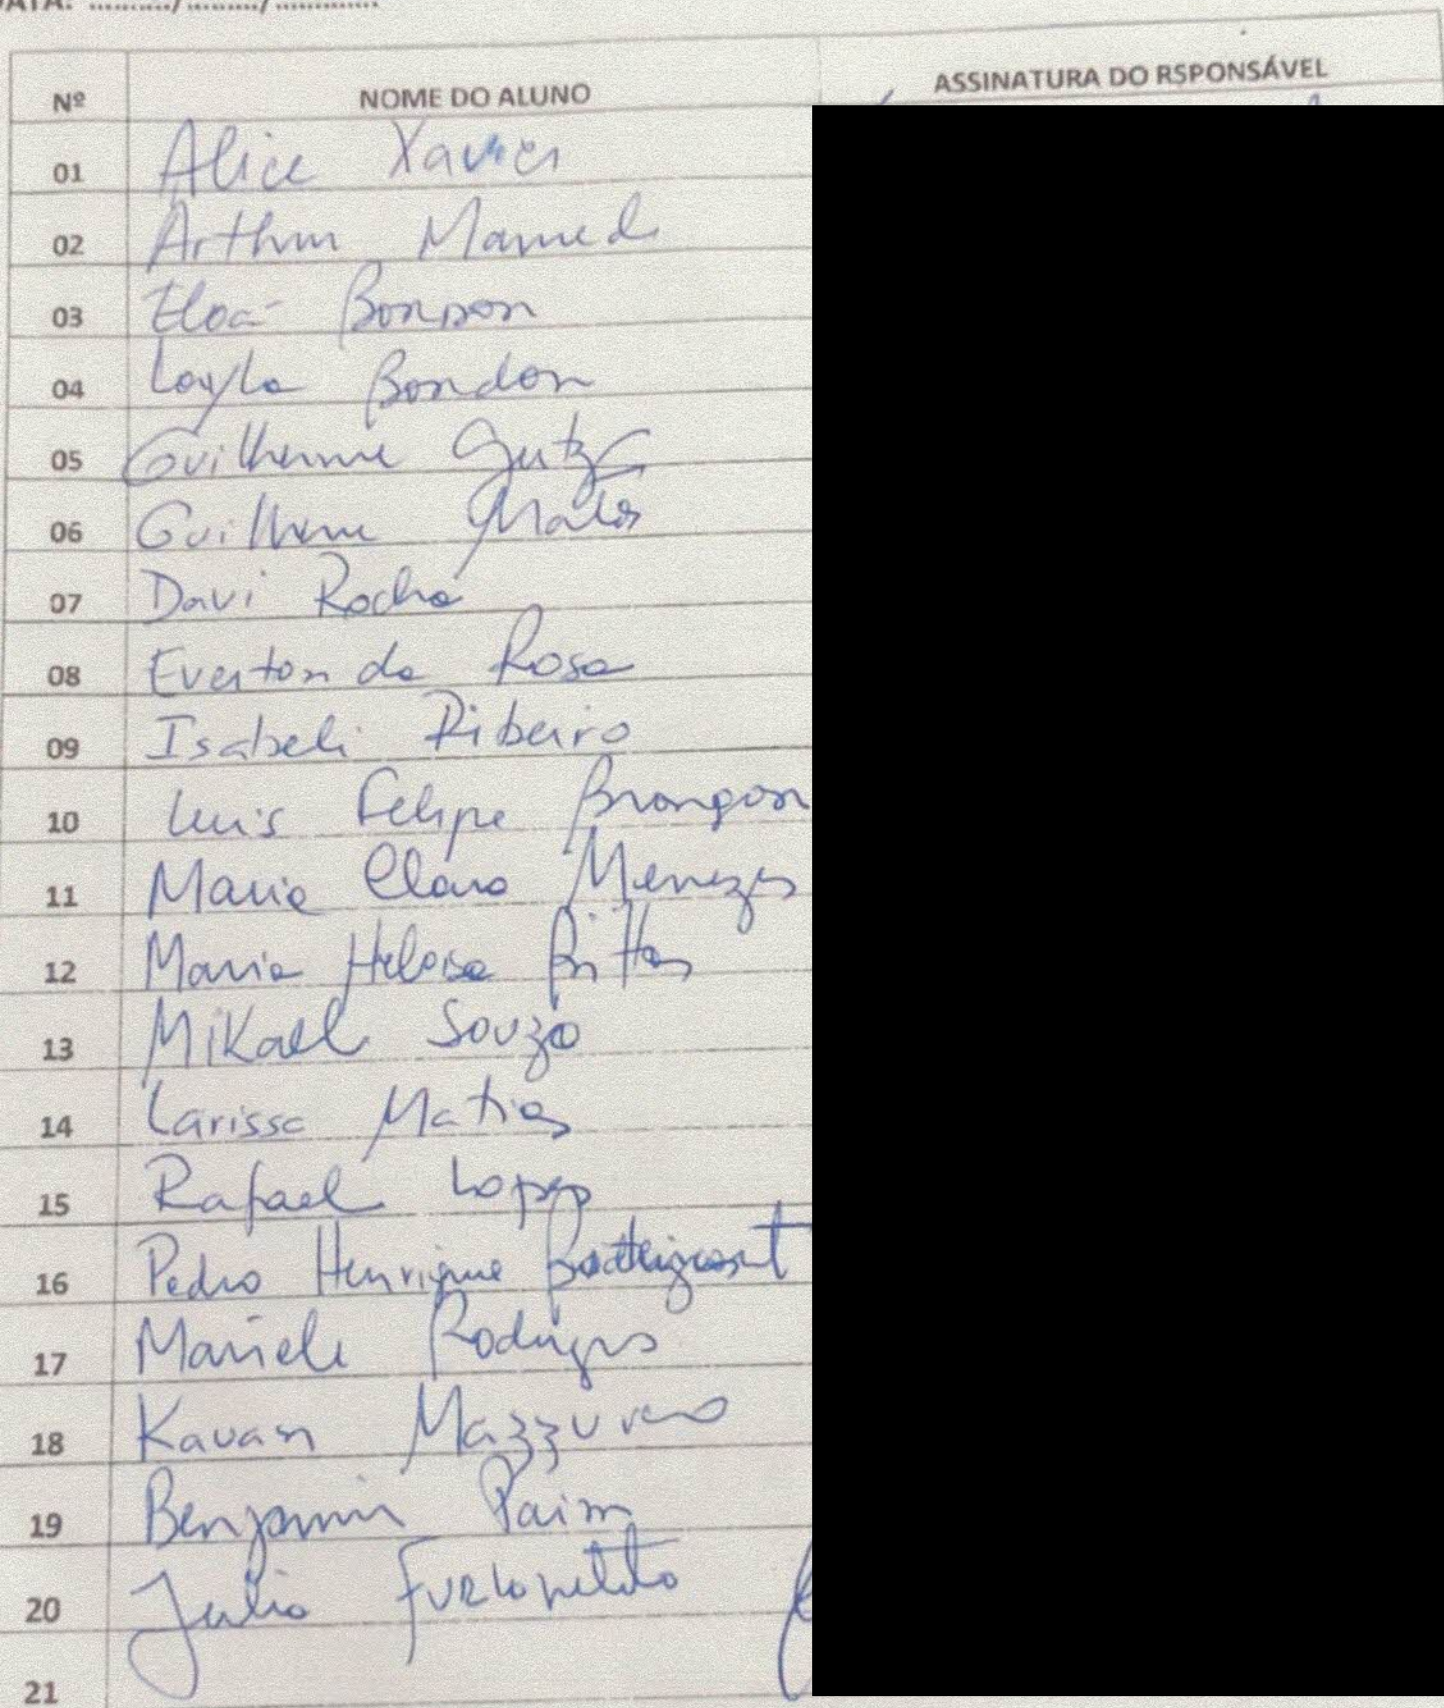 DATA: ........../........./.............
Nº NOME DO ALUNO ASSINATURA DO RSPONSÁVEL
01 Alice Xavier
02 Arthur
03 Eloá Bordon
04 Layla Bondon
05 Guilherme
06 Guilherme Matos
07 Davi Rocha
08 Everton da Rosa
09 Isabeli Ribeiro
10 Luis Felipe
11 Maria Clara Menezes
12 Maria Heloisa
13 Mikael Souza
14 Larissa Matias
15 Rafael Lopes
16 Pedro Henrique
17 Marieli Rodrigues
18 Kauan
19 Benjamin Paim
20
21